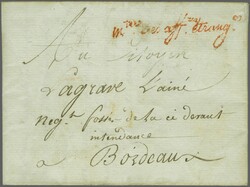 m^re des aff^res etrang^es
Au Citoyen
Lagrave L'ainé
Neg^t fossés de la ci devant
intendance
a Bordeaux